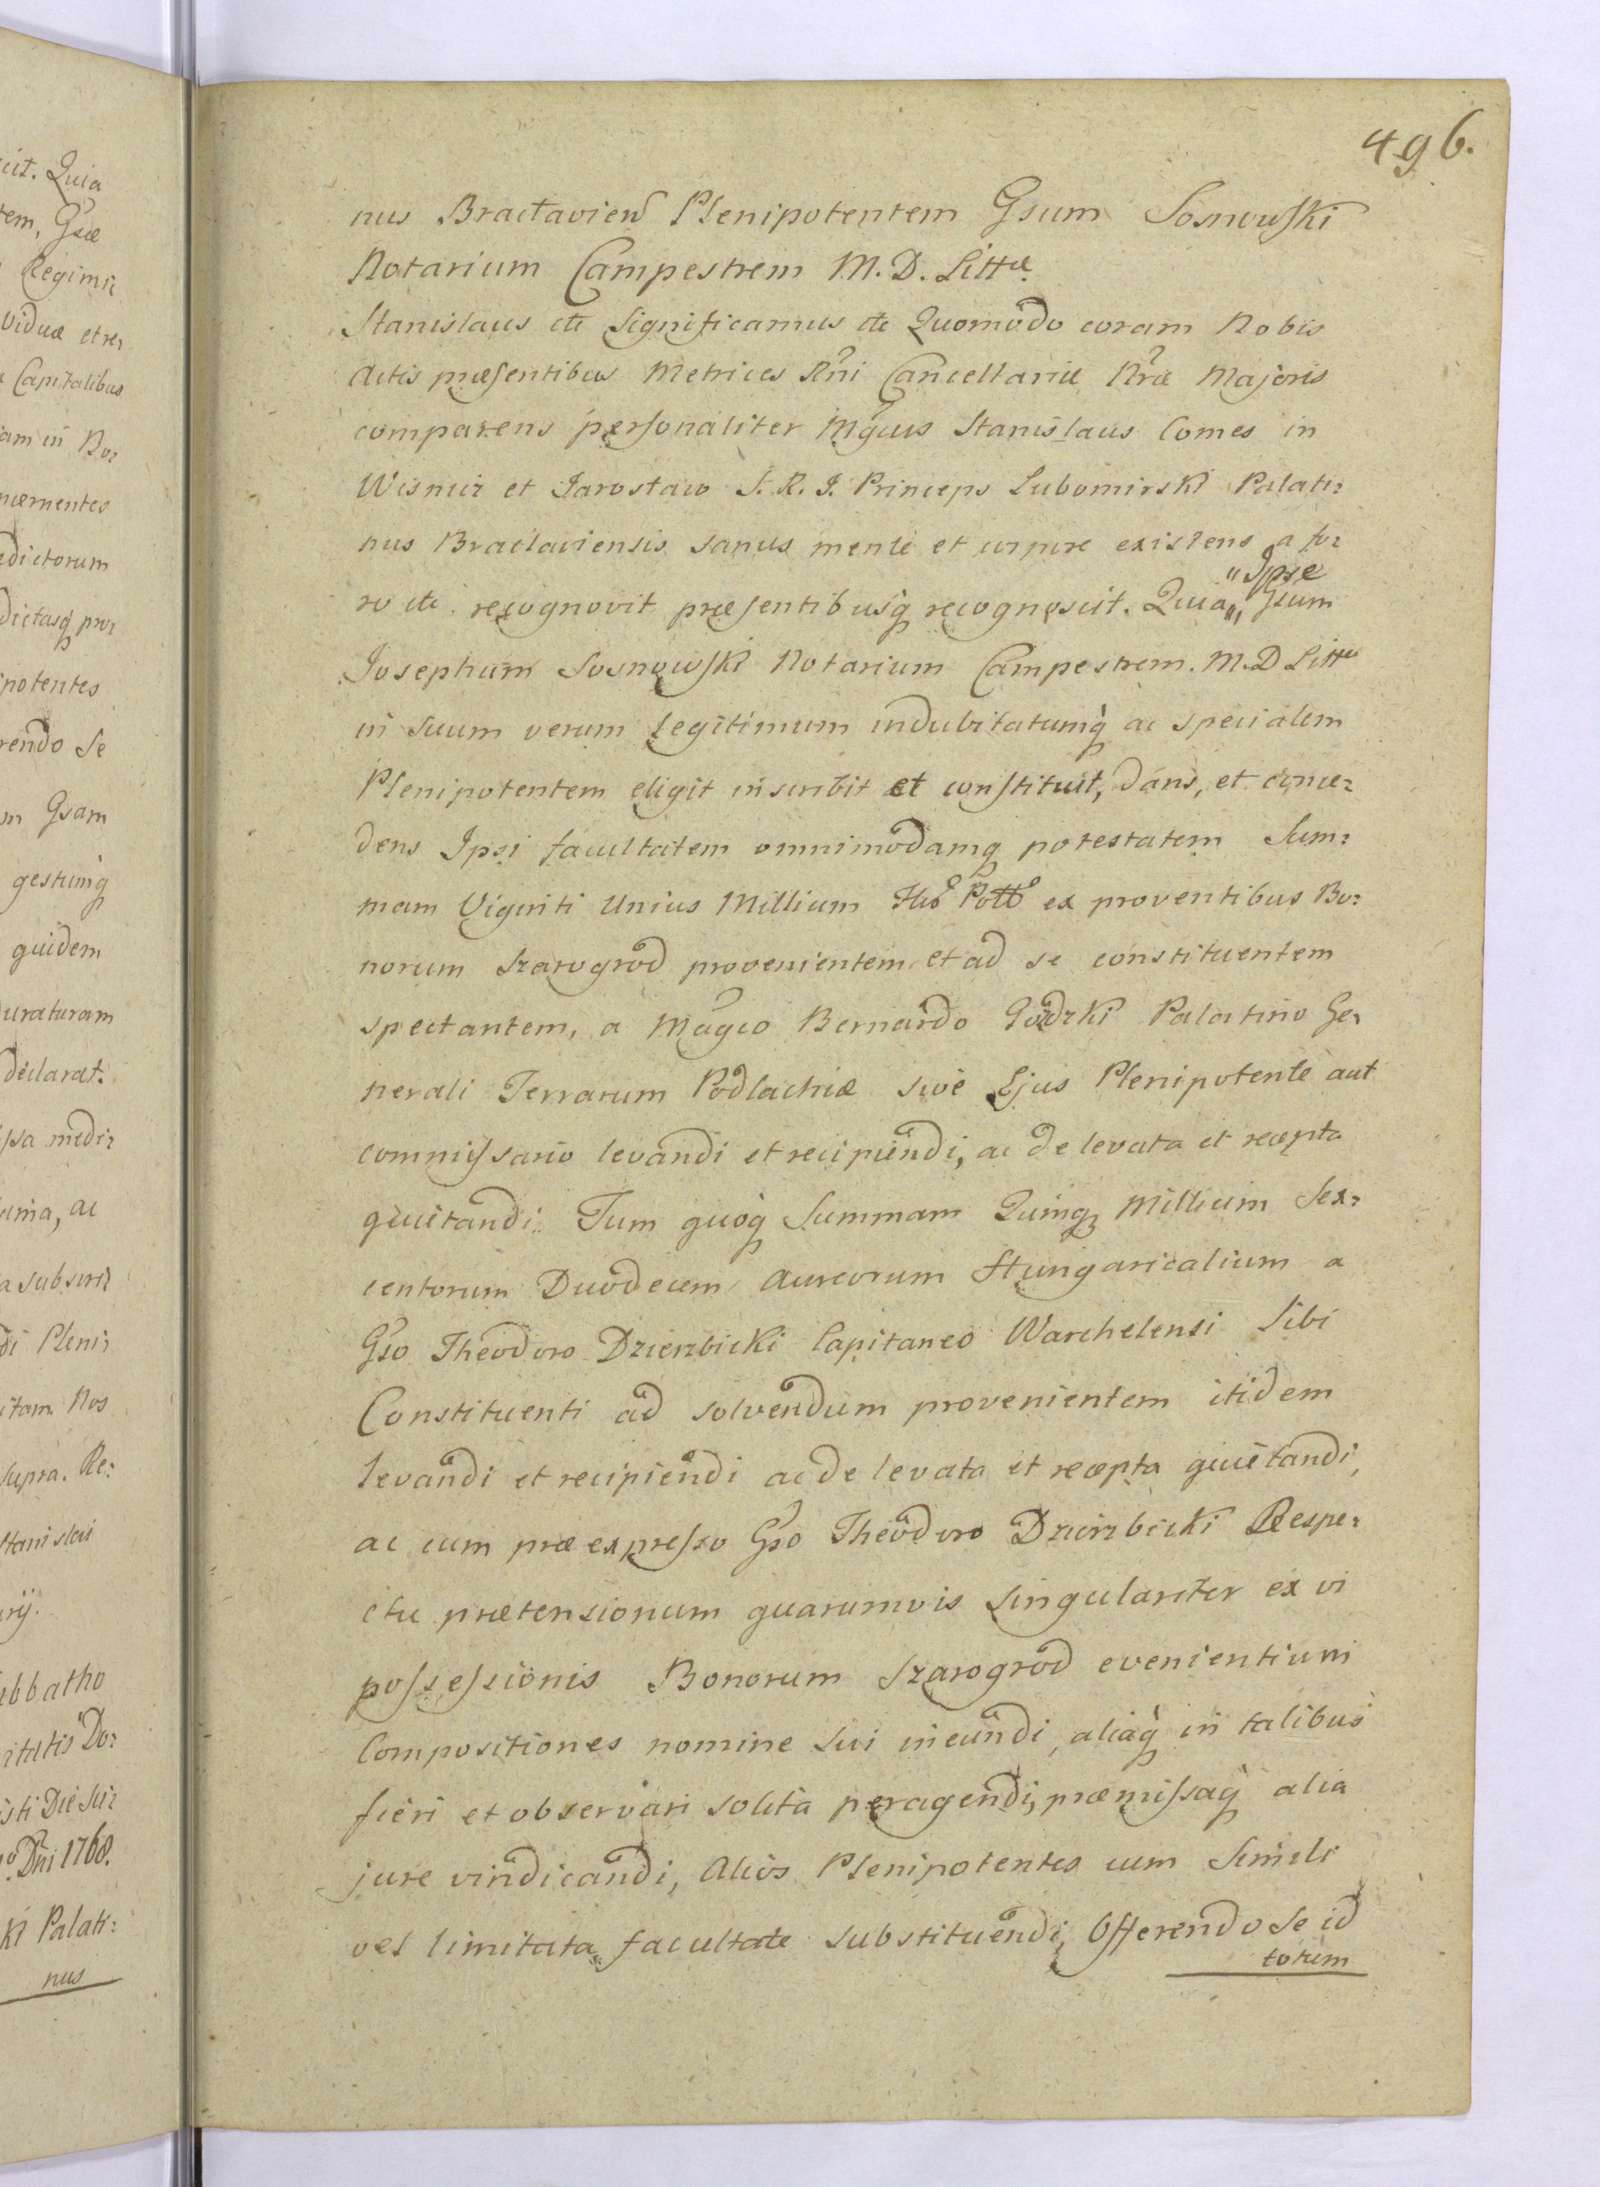 496.
nus Braclavien Plenipotentem Gsum Sosnowski
Notarium Campestrem M. D. Littæ.
Stanislaus etc Significamus etc Quomodo coram Nobis
Actis præsentibus Metrices Rñi Cancellariæ Nræ Majoris
comparens personaliter Mgcus Stanislaus Comes in
Wisnicz et Jarosław S. R. I. Princeps Lubomirski Palati:
nus Braclaviensis sanus mente et corpore existens a fo:
ro etc. recognovit præsentibusq recognoscit. Quia „ Ipse „ Gsum
Josephum Sosnowski Notarium Campestrem. M. D Littæ
in suum verum legitimum indubitatumq ac specialem
Plenipotentem eligit inscribit et constituit, dans, et conce:
dens Ipsi facultatem omnimodamq potestatem Sum:
mam Viginti Unius Millium Flo Pollo ex proventibus Bo:
norum Szarogrod provenientem et ad se constituentem
spectantem, a Magco Bernardo Gozdzki Palatino Ge:
nerali Terrarum Podlachiæ sive Ejus Plenipotente aut
commissario levandi et recipiendi, ac de levata et recepta
quietandi. Tum quoq Summam Quinq Millium Sex:
centorum Duodecem Aureorum Hungaricalium a
Gso Theodoro Dzierzbicki Capitaneo Warchelensi Sibi
Constituenti ad solvendum provenientem itidem
levandi et recipiendi ac de levata et recepta quietandi,
ac cum præexpresso Gso Theodoro Dzierzbicki Respe:
ctu prætensionum quarumvis singulariter ex vi
possessionis Bonorum Szarogrod evenientium
Compositiones nomine sui ineundi, aliaq in talibus
fieri et observari solita peragendi, præmissaq alia
jure vindicandi, Alios Plenipotentes cum Simili
vel limitata facultate substituendi, Offerendo Se id
totum